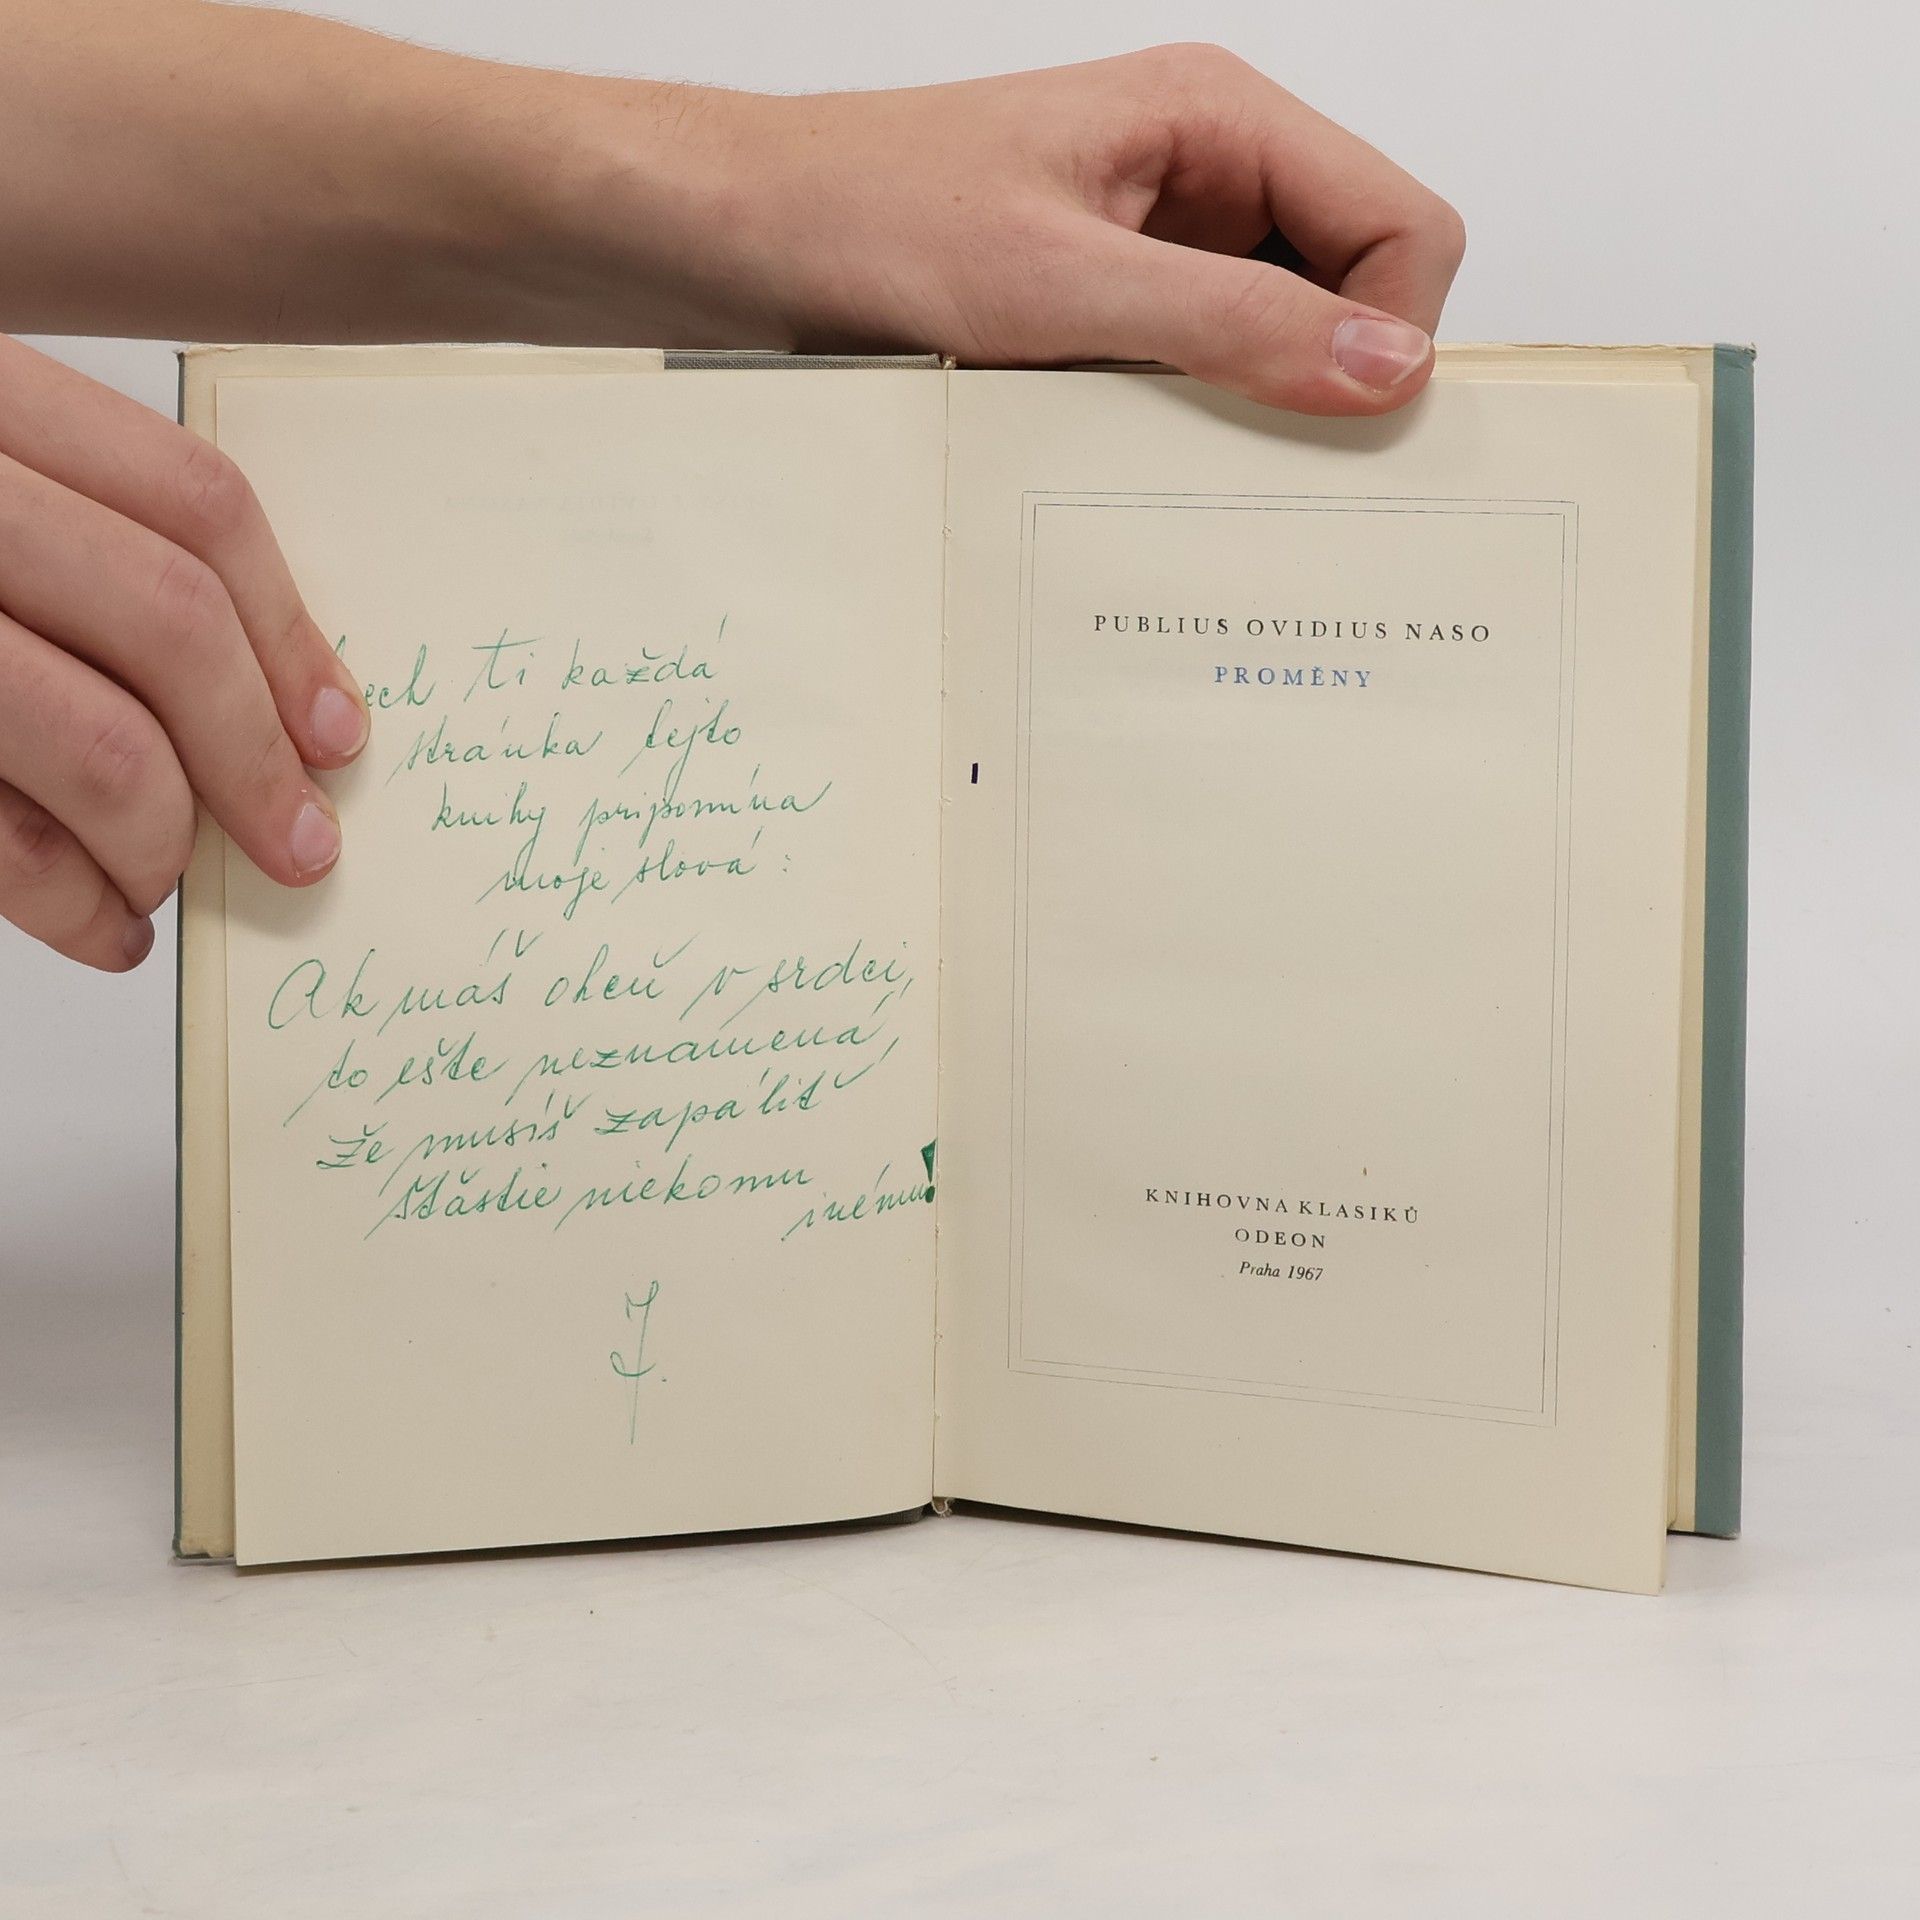 ech ti každá
stránka tejto
knihy pripomína
moje slová:
Ak máš oheň v srdci,
to ešte neznamená,
že musíš zapáliť
šťastie niekomu
inému!
J.
PUBLIUS OVIDIUS NASO
PROMĚNY
KNIHOVNA KLASIKŮ
ODEON
Praha 1967